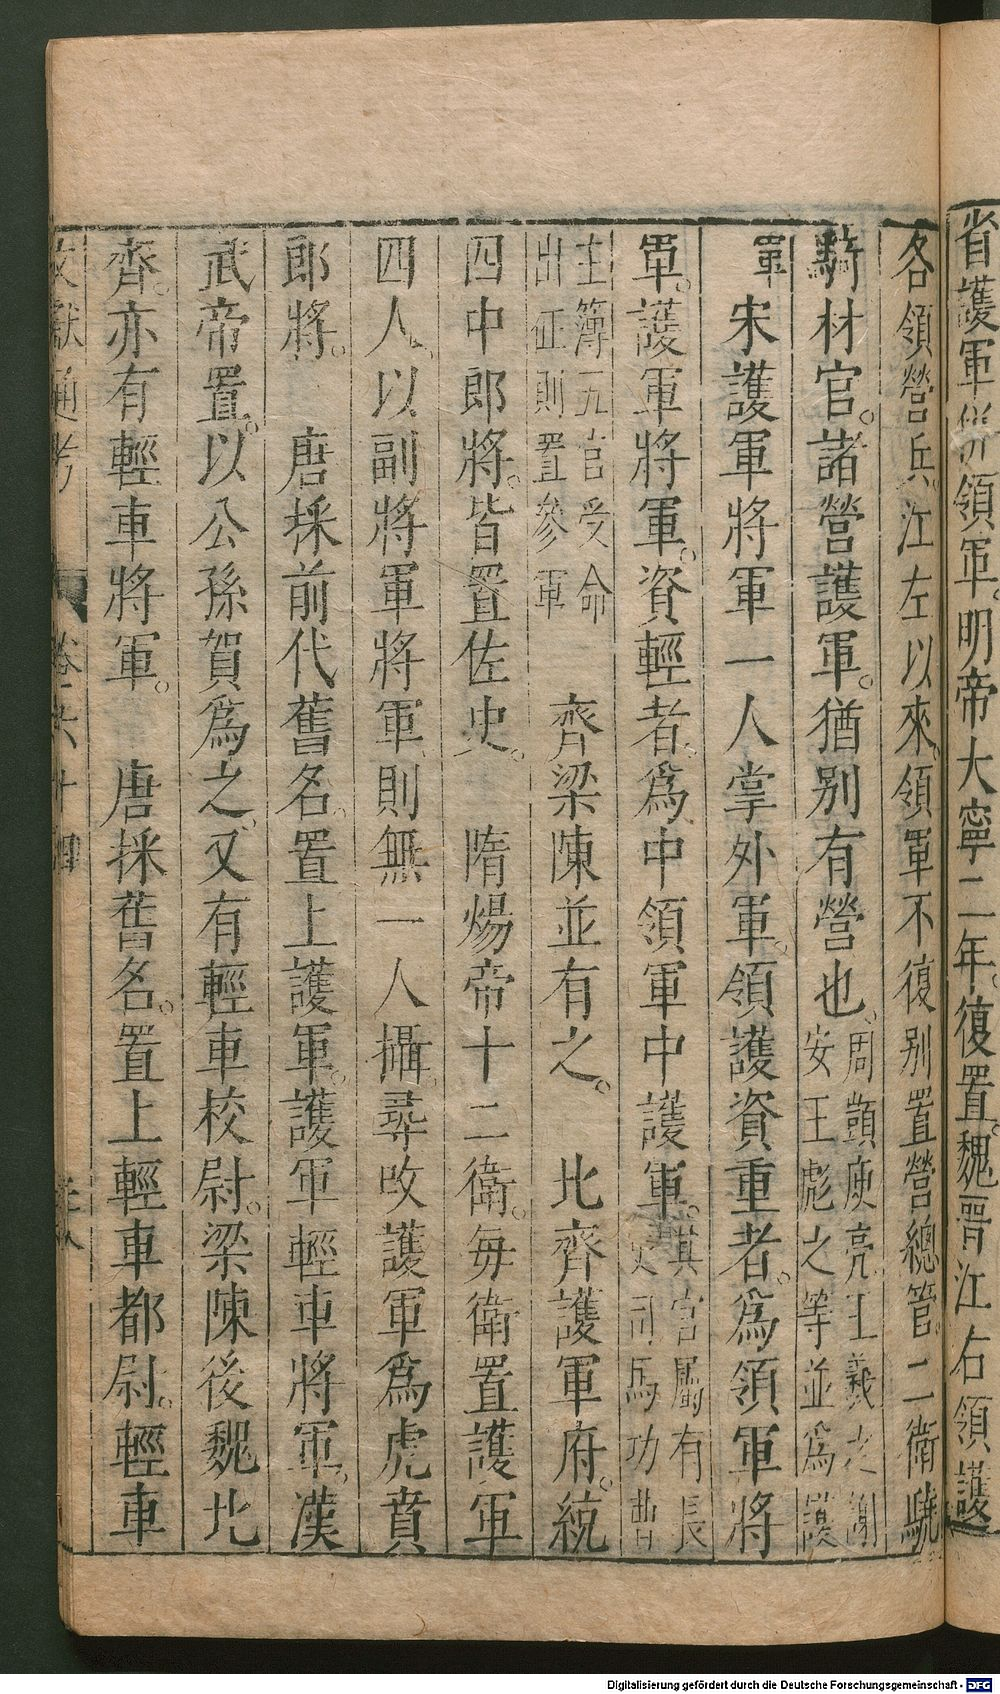 省護軍併領軍。明帝大寧二年。復置。魏晉江右領護
各領營兵。江左以來。領軍不復别置營總管。二衛驍
騎材官。諸營護軍。猶别有營也。周顗庾亮王羲之謝安王彪之等並爲護
軍 宋護軍將軍一人掌外軍。領護資重者。爲領軍將
軍。護軍將軍。資輕者。爲中領軍中護軍。其官屬有長史司馬功曹
主簿五官受命出征則置參軍 齊梁陳並有之。 北齊護軍府。統
四中郎將。皆置佐史。 隋煬帝十二衛。每衛置護軍
四人。以副將軍將軍則無一人攝。尋改護軍爲虎賁
郎將。 唐採前代舊名。置上護軍。護軍輕車將軍。漢
武帝置。以公孫賀爲之。又有輕車校尉。梁陳後魏北
齊。亦有輕車將軍。 唐採舊名。置上輕車都尉。輕車
文獻通考 卷六十四
Digitalisierung gefördert durch die Deutsche Forschungsgemeinschaft - DFG